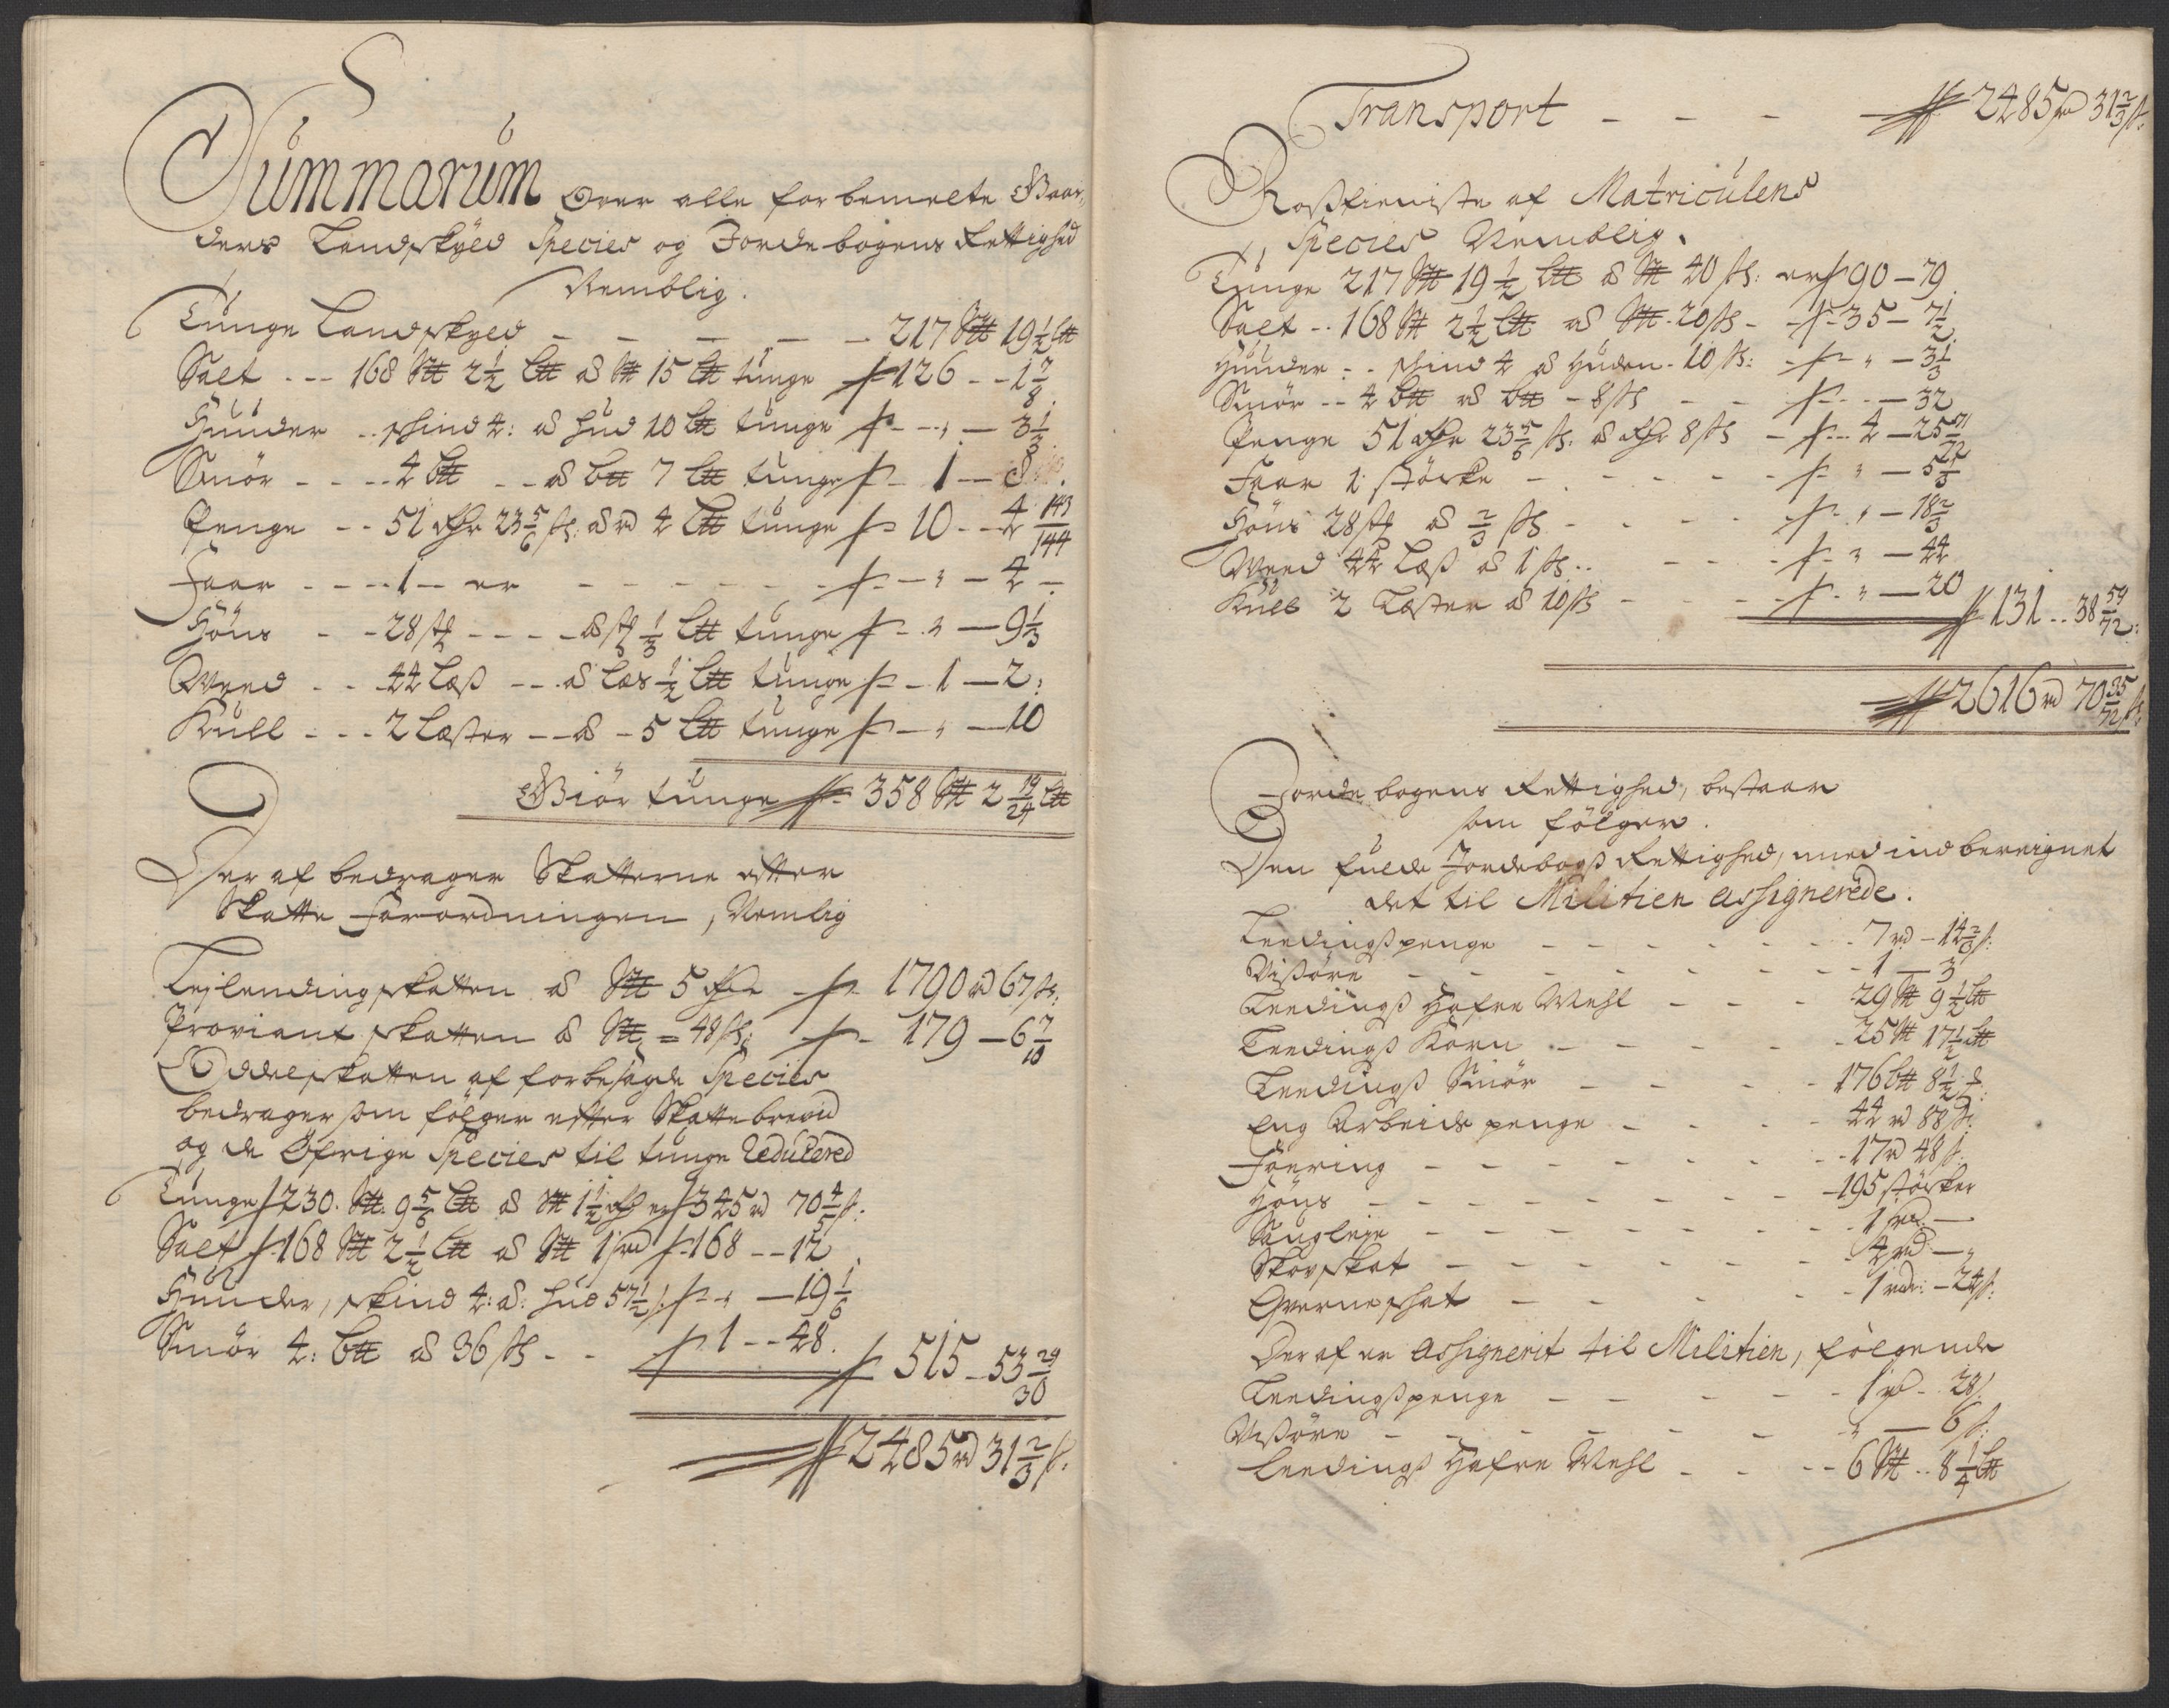 Summarum Over alle forbemelte Gaar¬
ders Landskyld Species og Jordebogens Rettighed
Nemblig.
Tunge Landskyld - - - - - 217 S℔ 19½ L℔
Salt - - - 168 S℔ 2½ L℔ á S℔ 15 L℔ tunge f 126 - - 1 7/8
Huuder - - skind 4: á hud 10 L℔ tunge f - „ - 3⅓
Smör - - - - 4 B℔ - - á B℔ 7 L℔ tunge f - 1 - 8.
Penge - - 51 rdr 23 5/6 s: á rd 4 L℔ tunge f 10 - - 4 143/144
Faar - - - - 1 - er - - - - - - f - „ - 4 -
Höns - - 28 st - - - - á st ⅓ L℔ tunge f - „ - 9⅓
Weed - - 44 Læs - - á Læs ½ L℔ tunge f - 1 - 2:
Kull - - - 2 Læster - - á - 5 L℔ tunge f - „ - 10
Giör tunge f 358 S℔ 2 19/24 L℔
Her af bedrager Skatterne efter
Skatte Forordningen, Nemlig
Lejlendingskatten á S℔ 5 rdr f 1790 rd 67 s:
Proviant skatten á S℔ = 48 s: f - 179 - 6 7/10
Oddelskatten af forbesagde Species
bedrager som fölger efter Skattebrevid
og de Öfrige Species til tunge Reducered
Tunge f 230. S℔ 9 5/6 L℔ á S℔ 1½ rdr er f 345 rd 70 4/5 s:
Salt f 168 S℔ 2½ L℔ á S℔ 1 rd f 168 - - 12
Huuder, skind 4: á: hud 57½ s: f - „ - 19 1/6
Smör 4: B℔ á 36 s - - f 1 - - 48.
f 515 - 53 29/30
f 2485 rd 31⅔ s:
Transport - - - f 2485 rd 31⅔ s:
Rosstieniste af Matriculens
Species Nemblig.
Tunge 217 S℔ 19½ L℔ á S℔ 40 s: er f 90 - 79.
Salt - - 168 S℔ 2½ L℔ á S℔ 20 s - f 35 - 7½
Huuder - - skind 4 á Huden 10 s: - f - „ - 3⅓
Smör - - 4 B℔ á B℔ - 8 s - - f - - - 32
Penge 51 rdr 23 5/6 s. á rdr 8 s - f - - 4 - 25 71/72
Faar 1 støcke - - - - - f - „ - 5⅓
Höns 28 st á ⅔ s - - - - f - „ - 18⅔
Weed 44 Læs á 1 s - - - - f - „ - 44
Kull 2 Læster á 10 s - - - f - „ - 20
f 131 - - 38 59/72:
f 2616 rd 70 35/72 s:
Jordebogens Rettighed, bestaar
som fölger.
Den fulde Jordebogs Rettighed, med indbereignet
det til Militien assignerede.
Leedingspenge - - - - - - 7 rd - 14⅔ s:
Visöre - - - - - - - - 1 - 3
Leedings Hafre Mehl - - - - 29 S℔ 9½ L℔
Leedings Korn - - - - - 25 S℔ 17½ L℔
Leedings Smör - - - - 176 B℔ 8½
Eng Arbeids penge - - - - 44 rd 88 s:
Foering - - - - - - - 17 rd 48 s:
Höns - - - - - - - - 195 støcker
Saugleje - - - - - - - - 1 rd. -
Skovskat - - - - - - - 4 rd - „
Qverneskat - - - - - 1 rdr: - 24 s:
Heraf er assignerit til Militien, fölgende
Leedingspenge - - - - - - 1 rd - 28 s:
Visöre - - - - - - - „ - 6 s:
Leedings Hafre Mehl - - - - 6 S℔ - - 8¼ L℔